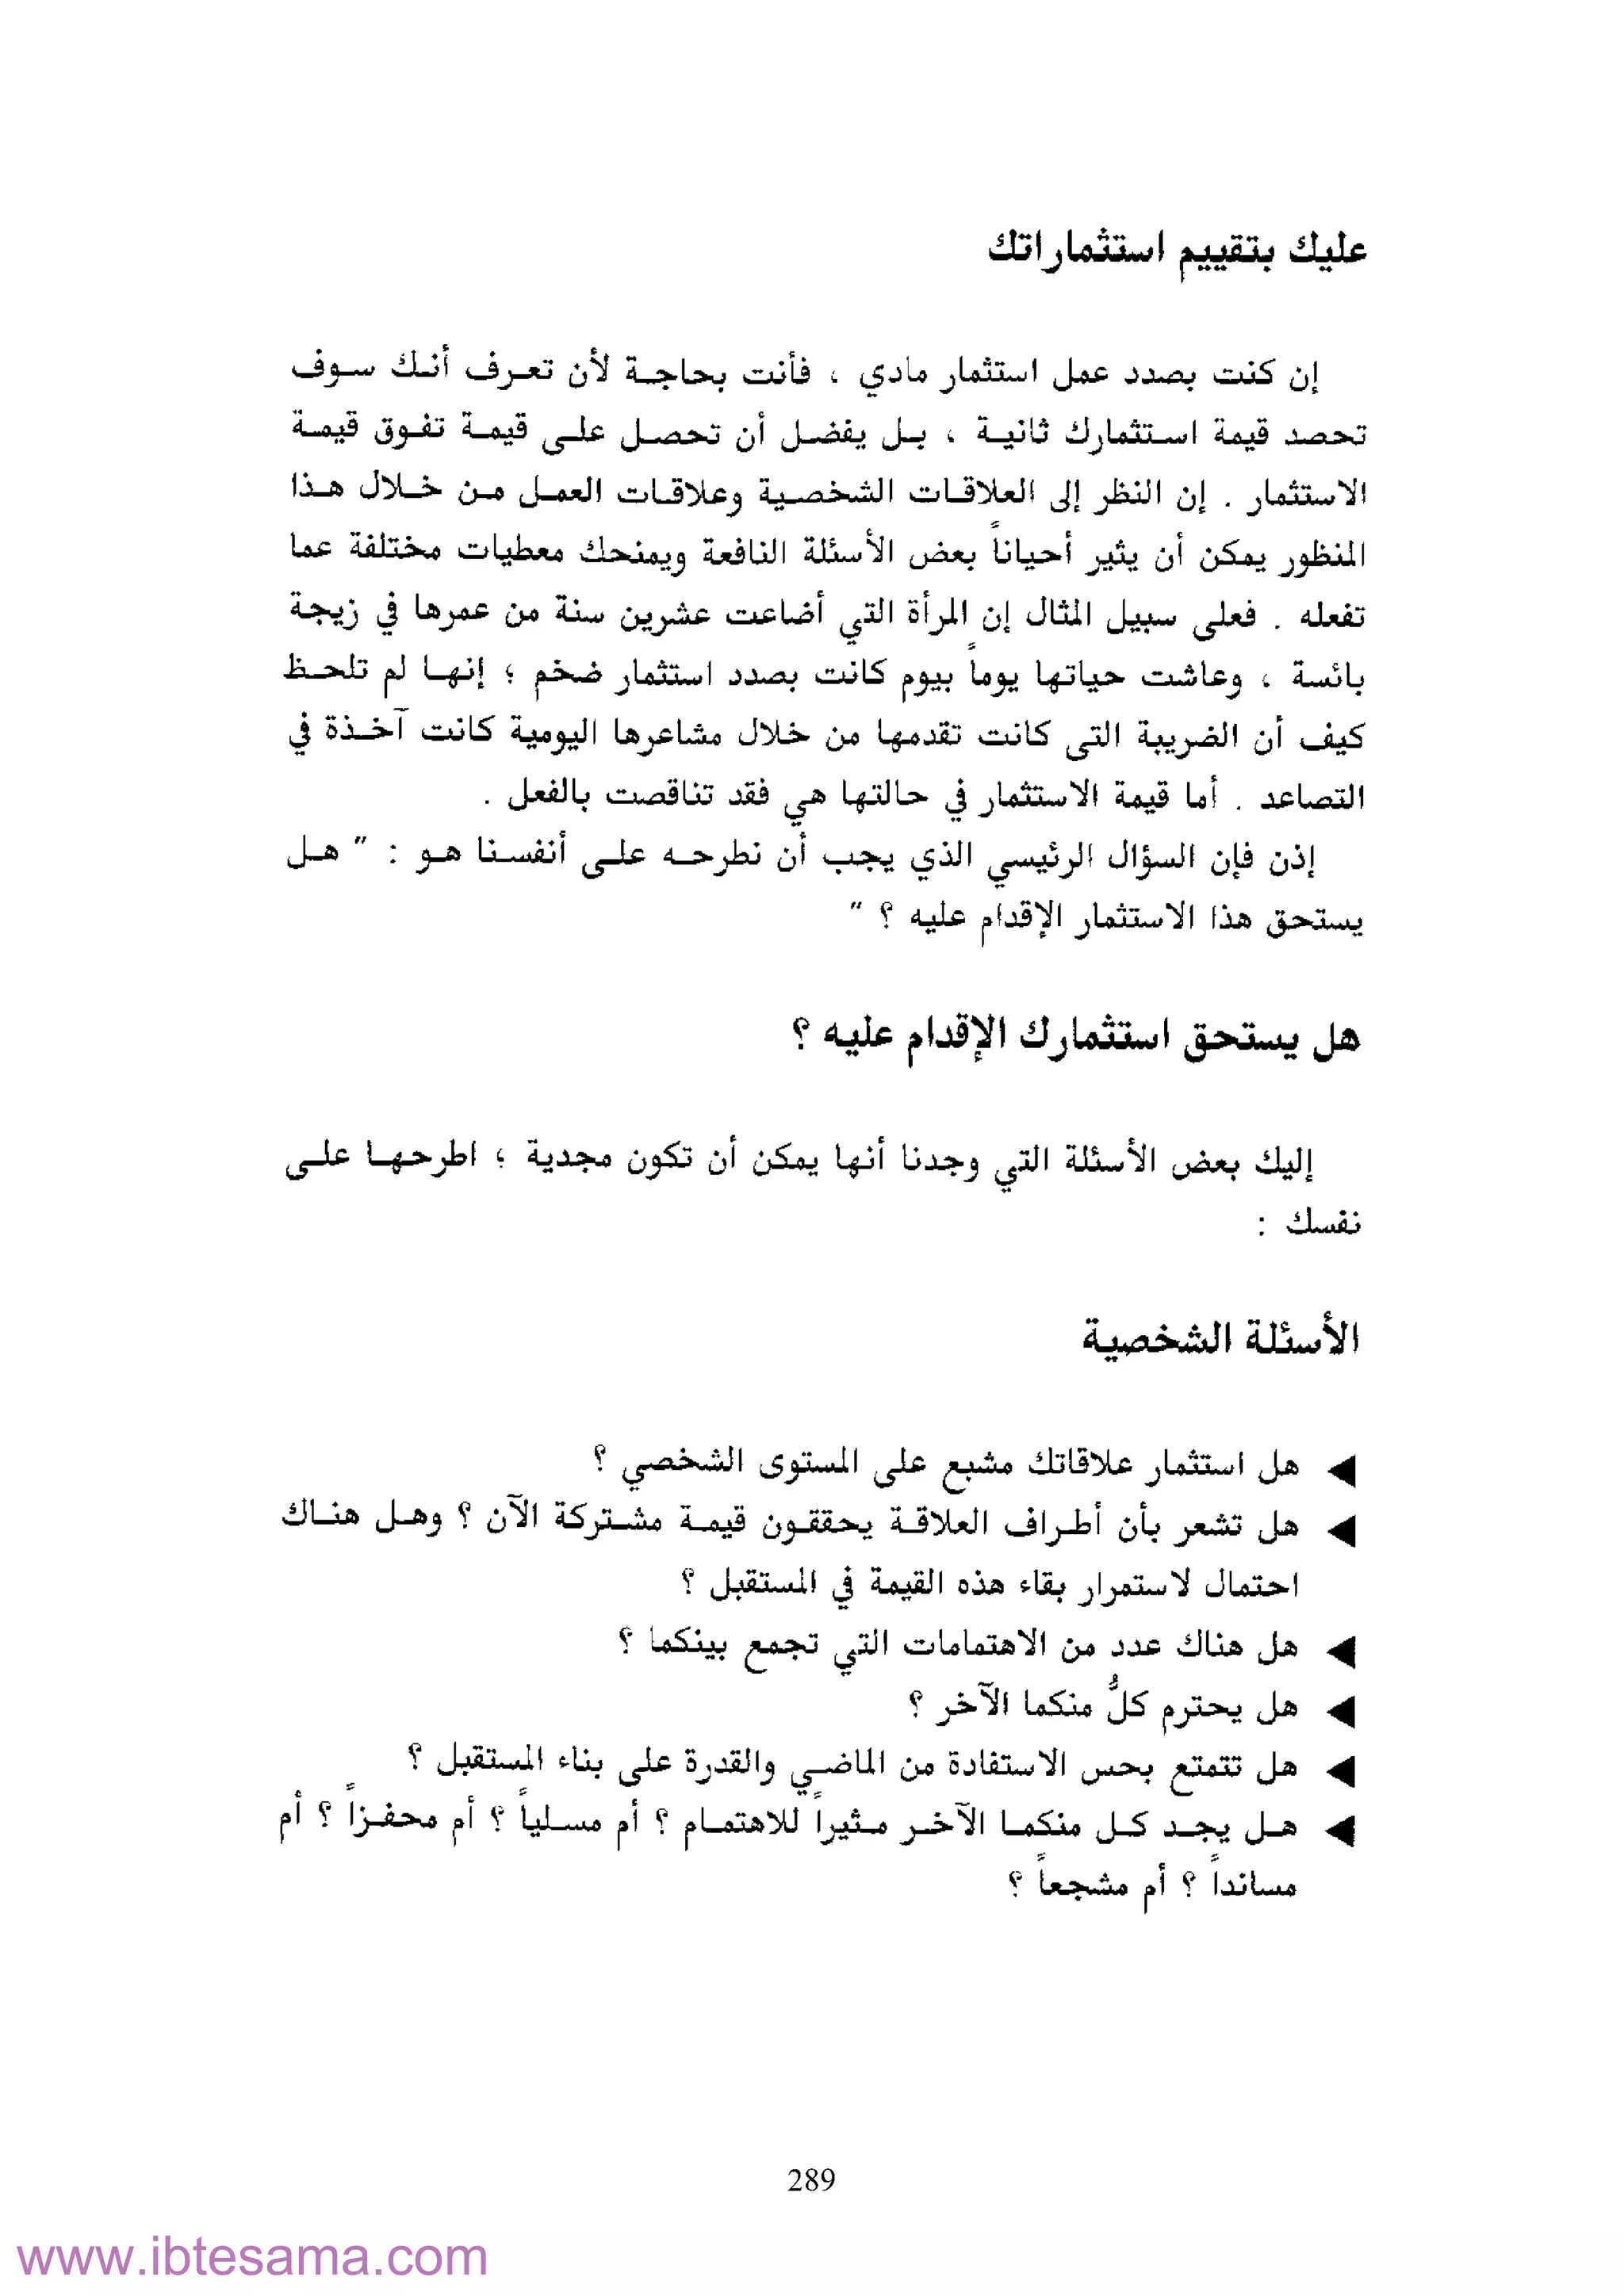 عليك بتقييم استثماراتك
إن كنت بصدد عمل استثمار مادي ، فأنت بحاجة لأن تعرف أنك سوف
تحصد قيمة استثمارك ثانية ، بل يفضل أن تحصل على قيمة تفوق قيمة
الاستثمار . إن النظر إلى العلاقات الشخصية وعلاقات العمل من خلال هذا
المنظور يمكن أن يثير أحياناً بعض الأسئلة النافعة ويمنحك معطيات مختلفة عما
تفعله . فعلى سبيل المثال إن المرأة التي أضاعت عشرين سنة من عمرها في زيجة
بائسة ، وعاشت حياتها يوماً بيوم كانت بصدد استثمار ضخم ؛ إنها لم تلحظ
كيف أن الضريبة التى كانت تقدمها من خلال مشاعرها اليومية كانت آخذة في
التصاعد . أما قيمة الاستثمار في حالتها هي فقد تناقصت بالفعل .
إذن فإن السؤال الرئيسي الذي يجب أن نطرحه على أنفسنا هو : " هل
يستحق هذا الاستثمار الإقدام عليه ؟ "
هل يستحق استثمارك الإقدام عليه ؟
إليك بعض الأسئلة التي وجدنا أنها يمكن أن تكون مجدية ؛ اطرحها على
نفسك :
الأسئلة الشخصية
◄ هل استثمار علاقاتك مشبع على المستوى الشخصي ؟
◄ هل تشعر بأن أطراف العلاقة يحققون قيمة مشتركة الآن ؟ وهل هناك
احتمال لاستمرار بقاء هذه القيمة في المستقبل ؟
◄ هل هناك عدد من الاهتمامات التي تجمع بينكما ؟
◄ هل يحترم كلُّ منكما الآخر ؟
◄ هل تتمتع بحس الاستفادة من الماضي والقدرة على بناء المستقبل ؟
◄ هل يجد كل منكما الآخر مثيراً للاهتمام ؟ أم مسلياً ؟ أم محفزاً ؟ أم
مسانداً ؟ أم مشجعاً ؟
289
www.ibtesama.com